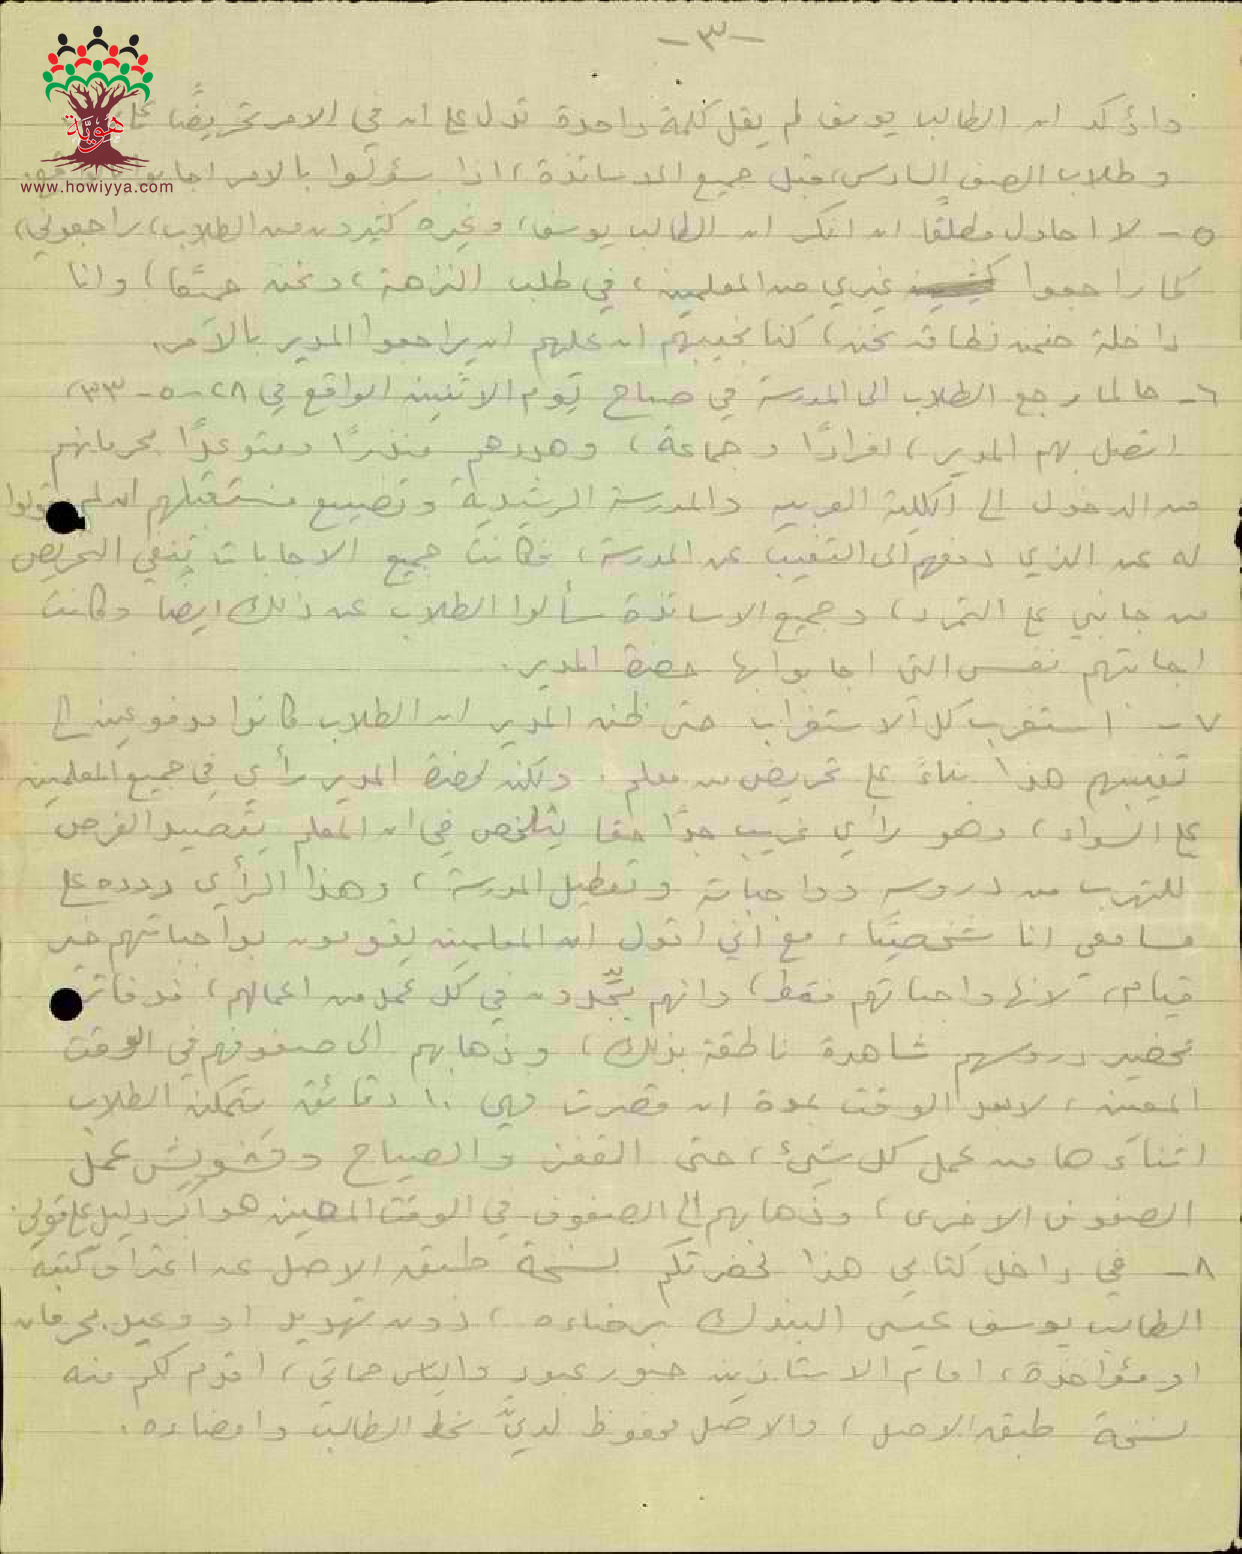 -٣-
واؤكد ان الطالب يوسف لم يقل كلمة واحدة تدل على ان في الامر تحريضًا
هويّة
وطلاب الصف السادس، قبل جميع الاساتذة، اذا سؤلوا بالامر اجابوا
www.howiyya.com
٥- لا احاول مطلقًا ان انكر ان الطالب يوسف، وغيره كثيرون من الطلاب، راجعوني،
كما راجعوا غيري من المعلمين، في طلب النزهة، ونحن جميعًا، وانا
داخلة ضمن نطاق نحن، كنا نجيبهم ان عليهم ان يراجعوا المدير بالامر.
٦- حالما رجع الطلاب الى المدرسة في صباح يوم الاثنين الواقع في ٢٨-٥-٣٣،
اتصل بهم المدير، افرادًا وجماعة، وهددهم منذرًا ومتوعدًا بحرمانهم
من الدخول الى الكلية العربية والمدرسة الرشيدية وتضييع مستقبلهم ان لم يقولوا
له عن الذي دفعهم الى التغيب عن المدرسة، فكانت جميع الاجابات تنفي التحريض
من جانبي على التمرد، وجميع الاساتذة سألوا الطلاب عن ذلك ايضا وكانت
اجابتهم نفس التي اجابوا بها حضرة المدير.
٧- استغرب كل الاستغراب حتى ظن المدير ان الطلاب كانوا مدفوعين الى
تغيبهم هذا بناءً على تحريض من معلم. ولكن لحضرة المدير رأي في جميع المعلمين
على السواء، وهو رأي غريب جدًا حقا يتلخص في ان المعلم يتصيد الفرص
للتهرب من دروسه وواجباته وتعطيل المدرسة، وهذا الرأي ردده على
مسامعي انا شخصيًا، مع اني اقول ان المعلمين يقومون بواجباتهم خير
قيام، لانها واجباتهم فقط، وانهم يجدّون في كل عمل من اعمالهم، فدفاتر
تحضير دروسهم شاهدة ناطقة بذلك، وذهابهم الى صفوفهم في الوقت
المعين، لا بعد الوقت بمدة ان قصرت فهي ١٠ دقائق يتمكن الطلاب
اثناءها من عمل كل شيء، حتى القفز والصياح وتشويش عمل
الصفوف الاخرى، وذهابهم الى الصفوف في الوقت المعين هو اكبر دليل على قولي.
٨- في داخل كتابي هذا لحضرتكم نسخة طبق الاصل عن اعتراف كتبه
الطالب يوسف عيسى البندك برضاءه، دون تهديد او وعيد بحرمان
او مؤاخذة، امام الاستاذين جبور عبود والياس حماتي، اقدم لكم منه
نسخة طبق الاصل، والاصل محفوظ لديّ بخط الطالب وامضاءه.